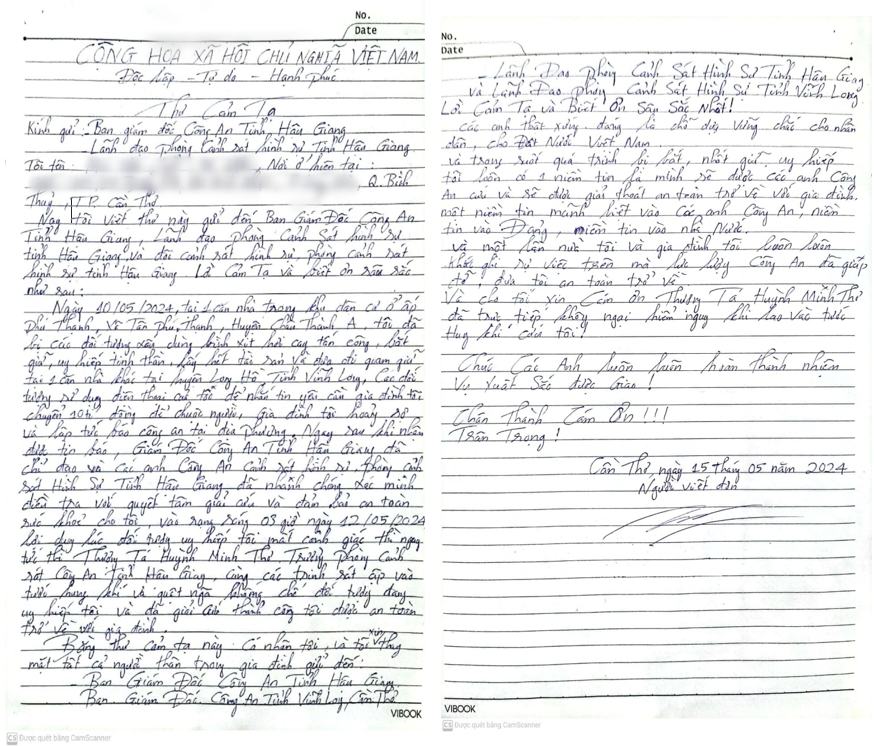 No.
Date
CỘNG HÒA XÃ HỘI CHỦ NGHĨA VIỆT NAM
Độc lập - Tự do - Hạnh phúc
Thư Cảm Tạ
Kính gửi: - Ban giám đốc Công An Tỉnh Hậu Giang
- Lãnh đạo phòng Cảnh sát hình sự Tỉnh Hậu Giang
Tôi tên: , Nơi ở hiện tại:
, Q. Bình
Thuỷ, TP. Cần Thơ
Nay tôi viết thư này gửi đến Ban Giám Đốc Công An
Tỉnh Hậu Giang, Lãnh đạo phòng Cảnh Sát hình sự
tỉnh Hậu Giang và đội cảnh sát hình sự, phòng cảnh sát
hình sự tỉnh Hậu Giang Lời Cảm Tạ và biết ơn sâu sắc
như sau:
Ngày 10/05/2024, tại 1 căn nhà trong khu dân cư ở ấp
Phú Thạnh, Xã Tân Phú Thạnh, Huyện Châu Thành A, tôi đã
bị các đối tượng xấu dùng bình xịt hơi cay tấn công, bắt
giữ, uy hiếp tinh thần, lấy hết tài sản và đưa đi quản giữ
tại 1 căn nhà khác tại huyện Long Hồ, Tỉnh Vĩnh Long, Các đối
tượng sử dụng điện thoại của tôi để nhắn tin yêu cầu gia đình tôi
chuyển 10 tỷ đồng để chuộc người, Gia đình tôi hoảng sợ
và lập tức báo công an tại địa phương, Ngay sau khi nhận
được tin báo, Giám Đốc Công An Tỉnh Hậu Giang đã
chỉ đạo và các anh Công An cảnh sát hình sự, phòng cảnh
sát Hình Sự Tỉnh Hậu Giang đã nhanh chóng xác minh
điều tra với quyết tâm giải cứu và đảm bảo an toàn
sức khoẻ cho tôi, vào rạng sáng 03 giờ ngày 12/05/2024
lợi dụng lúc đối tượng uy hiếp tôi mất cảnh giác thì ngay
tức thì Thượng Tá Huỳnh Minh Thơ, Trưởng phòng Cảnh
sát Công An Tỉnh Hậu Giang, cùng các trinh sát ập vào
tước hung khí và quật ngã khống chế đối tượng đang
uy hiếp tôi và đã giải cứu thành công tôi được an toàn
trở về với gia đình
Bằng thư cảm tạ này Cá nhân tôi, và tôi xin thay
mặt tất cả người thân trong gia đình gửi đến:
- Ban Giám Đốc Công An Tỉnh Hậu Giang
- Ban Giám Đốc Công An Tỉnh Vĩnh Long, Cần Thơ
VIBOOK
CS Được quét bằng CamScanner
No.
Date
- Lãnh Đạo phòng Cảnh Sát Hình Sự Tỉnh Hậu Giang
và Lãnh Đạo phòng Cảnh Sát Hình Sự Tỉnh Vĩnh Long
Lời Cảm Tạ và Biết Ơn Sâu Sắc Nhất!
Các anh thật xứng đáng là chỗ dựa vững chắc cho nhân
dân, cho Đất Nước Việt Nam
và trong suốt quá trình bị bắt, nhốt giữ, uy hiếp
tôi luôn có 1 niềm tin là mình sẽ được các anh Công
An cứu và sẽ được giải thoát an toàn trở về với gia đình.
một niềm tin mãnh liệt vào Các anh Công An, niềm
tin vào Đảng, niềm tin vào nhà Nước.
Và một lần nữa tôi và gia đình tôi luôn luôn
khắc ghi sự việc trên mà lực lượng Công An đã giúp
đỡ, đưa tôi an toàn trở về
Và cho tôi xin Cám ơn Thượng Tá Huỳnh Minh Thơ
đã trực tiếp không ngại hiểm nguy khi lao vào tước
Hung khí cứu tôi!
Chúc Các Anh luôn luôn hoàn thành nhiệm
Vụ Xuất Sắc được Giao!
Chân Thành Cám Ơn!!!
Trân Trọng!
Cần Thơ, ngày 15 tháng 05 năm 2024
Người viết đơn
VIBOOK
CS Được quét bằng CamScanner